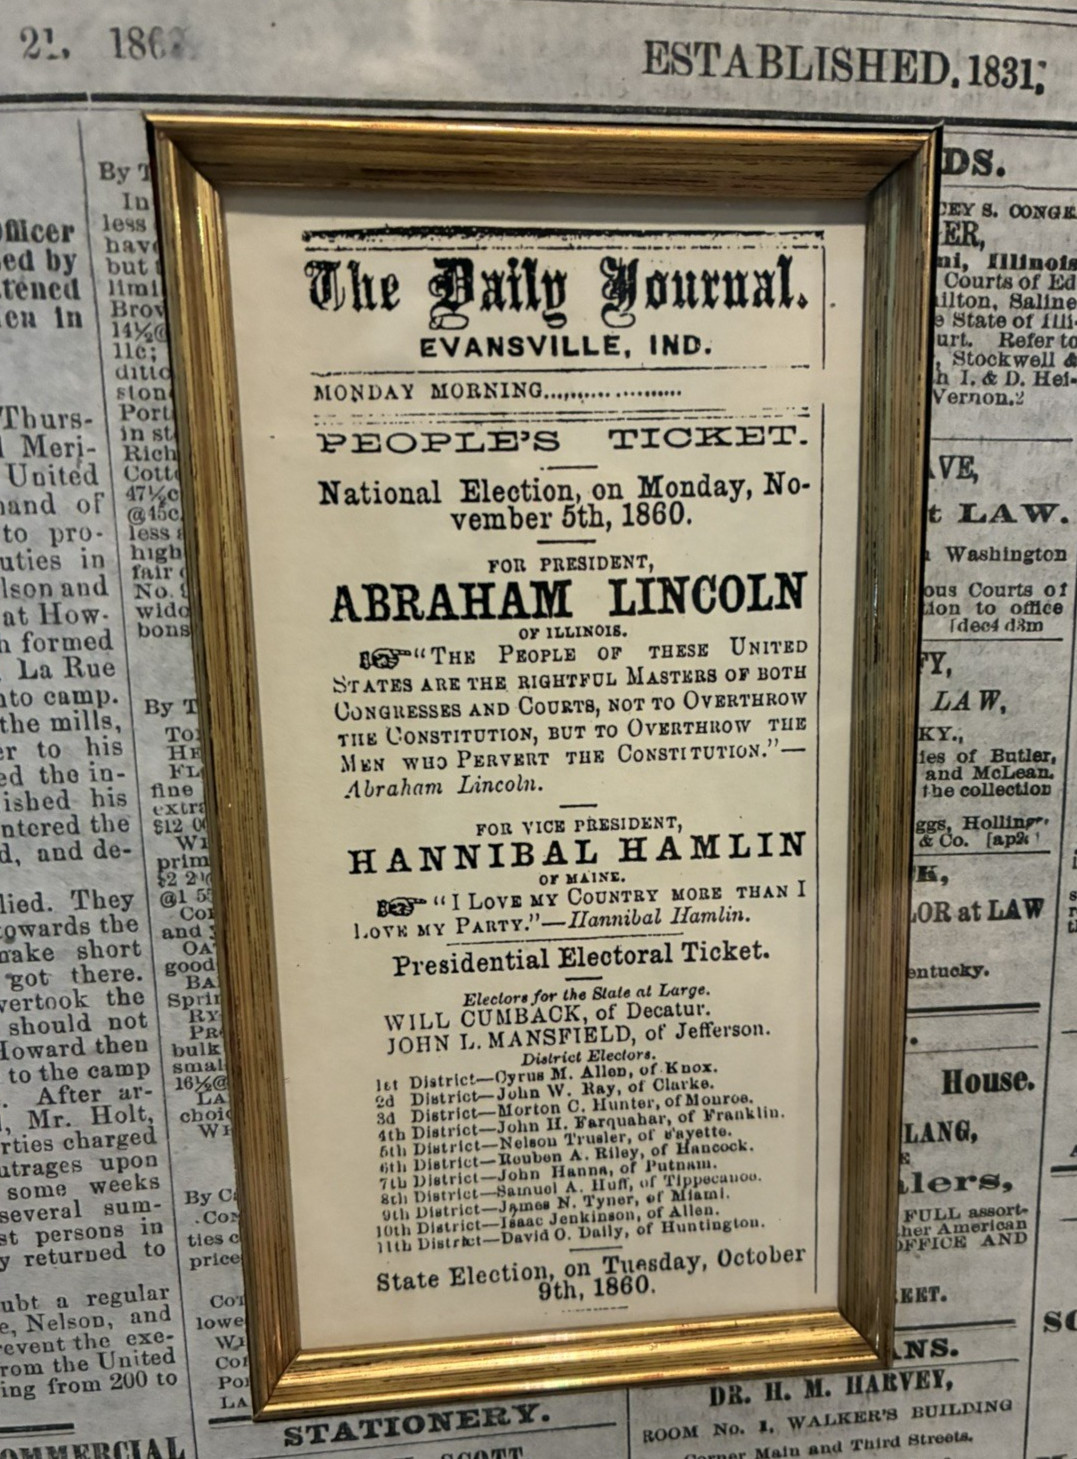 21, 186
ESTABLISHED, 1831;
The Daily Journal.
EVANSVILLE, IND.
MONDAY MORNING....................
PEOPLE'S TICKET.
National Election, on Monday, No-
vember 5th, 1860.
FOR PRESIDENT,
ABRAHAM LINCOLN
OF ILLINOIS.
☞"THE PEOPLE OF THESE UNITED
STATES ARE THE RIGHTFUL MASTERS OF BOTH
CONGRESSES AND COURTS, NOT TO OVERTHROW
THE CONSTITUTION, BUT TO OVERTHROW THE
MEN WHO PERVERT THE CONSTITUTION."—
Abraham Lincoln.
FOR VICE PRESIDENT,
HANNIBAL HAMLIN
OF MAINE.
☞"I LOVE MY COUNTRY MORE THAN I
LOVE MY PARTY."—Hannibal Hamlin.
Presidential Electoral Ticket.
Electors for the State at Large.
WILL CUMBACK, of Decatur.
JOHN L. MANSFIELD, of Jefferson.
District Electors.
1st District—Cyrus M. Allen, of Knox.
2d District—John W. Ray, of Clarke.
3d District—Morton C. Hunter, of Monroe.
4th District—John H. Farquahar, of Franklin.
5th District—Nelson Trusler, of Fayette.
6th District—Reuben A. Riley, of Hancock.
7th District—John Hanna, of Putnam.
8th District—Samuel A. Huff, of Tippecanoe.
9th District—James N. Tyner, of Miami.
10th District—Isaac Jenkinson, of Allen.
11th District—David O. Daily, of Huntington.
State Election, on Tuesday, October
9th, 1860.
fficer
ed by
tened
en in
Thurs-
Meri-
United
and of
to pro-
uties in
lson and
at How-
formed
La Rue
nto camp.
the mills,
er to his
ed the in-
ished his
ntered the
d, and de-
lied. They
towards the
make short
got there.
vertook the
should not
Howard then
to the camp
After ar-
Mr. Holt,
rties charged
utrages upon
some weeks
several sum-
st persons in
y returned to
ubt a regular
e, Nelson, and
revent the exe-
rom the United
ing from 200 to
OMMERCIAL
By T
In
less
have
but
limi
Brov
14½@
11c;
ditto
ston
Port
in st
Rich
Cott
47½c
@45c
less
high
fair
No.
wide
bons
By T
fine
extra
$12
prim
and
good
Sprin
bulk
smal
16½@
choic
ties c
price
lowe
STATIONERY.
SCOTT
DS.
CEY S. CONGE
ER,
ni, Illinois
Courts of Ed
ilton, Saline
e State of Illi-
urt. Refer to
, Stockwell &
h I. & D. Hei-
Vernon.2
AVE,
t LAW.
Washington
ous Courts of
tion to office
[dec4 d3m
FY,
LAW,
KY.,
ies of Butler,
and McLean.
the collection
ggs, Holling
& Co. [ap2
K,
LOR at LAW
entucky.
House.
LANG,
lers,
FULL assort-
her American
OFFICE AND
EET.
ANS.
DR. H. M. HARVEY,
ROOM No. 1, WALKER'S BUILDING
Corner Main and Third Streets.